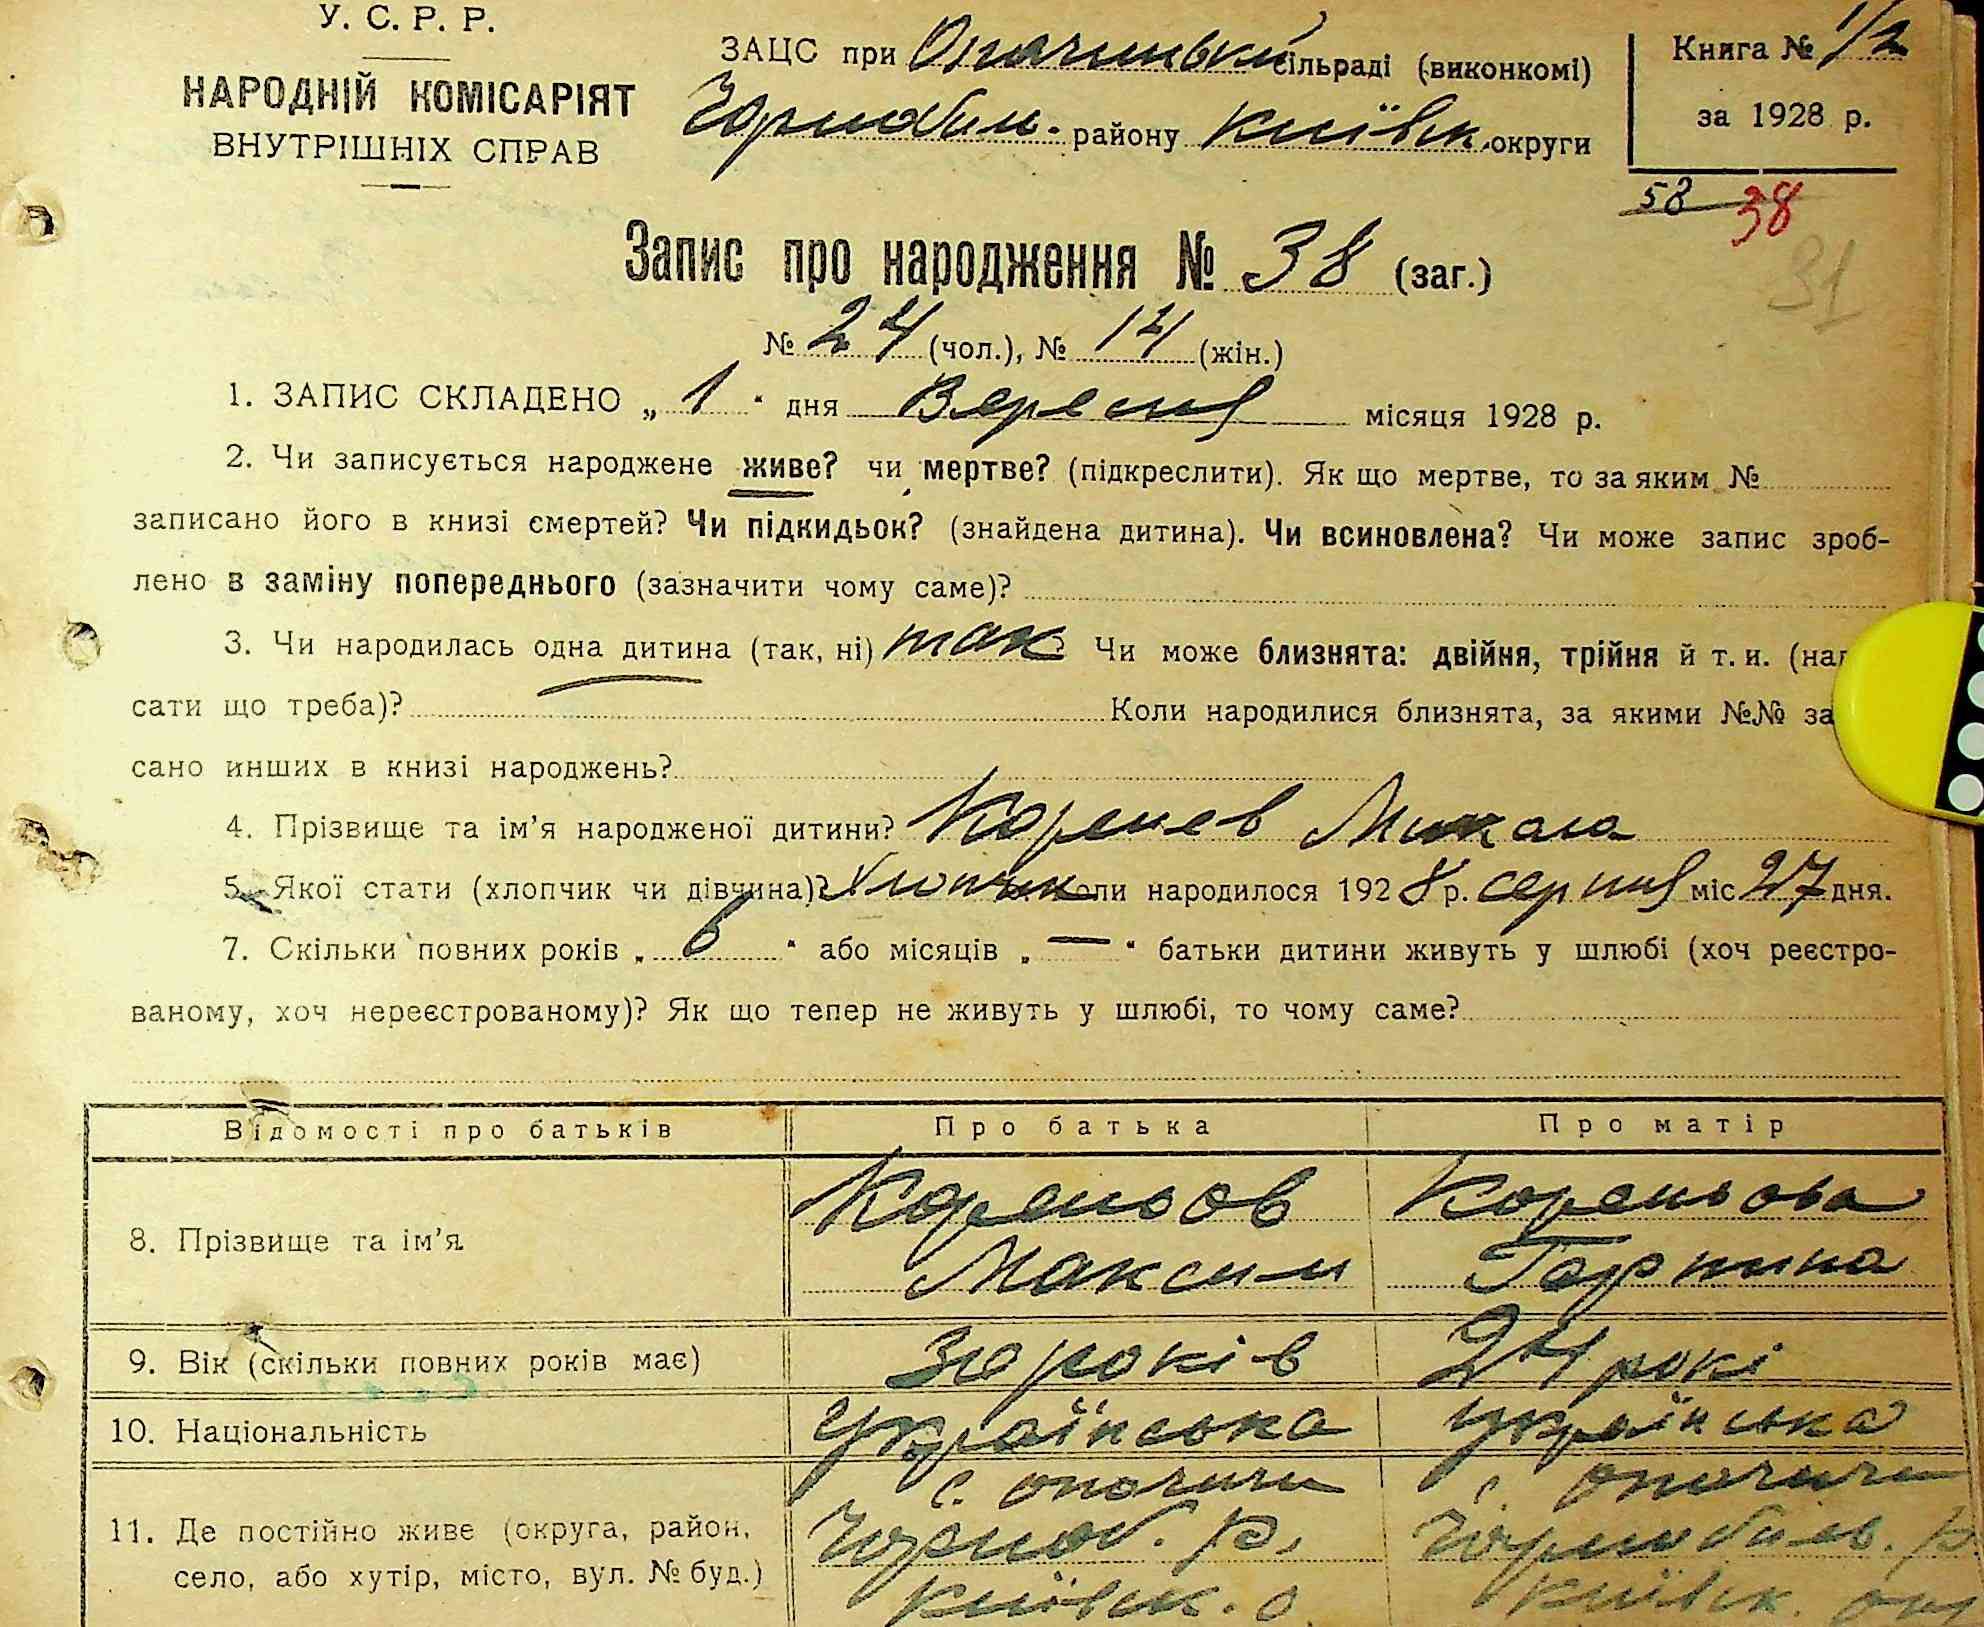 У. С. Р. Р.
НАРОДНІЙ КОМІСАРІЯТ
ВНУТРІШНІХ СПРАВ
ЗАЦС при Опачицькій сільраді (виконкомі)
Чорнобил. району Київськ. округи
Книга № 1/2
за 1928 р.
58 38
31
Запис про народження № 38 (заг.)
№ 24 (чол.), № 14 (жін.)
1. ЗАПИС СКЛАДЕНО „ 1 “ дня Вересня місяця 1928 р.
2. Чи записується народжене живе? чи мертве? (підкреслити). Як що мертве, то за яким №
записано його в книзі смертей? Чи підкидьок? (знайдена дитина). Чи всиновлена? Чи може запис зроб-
лено в заміну попереднього (зазначити чому саме)?
3. Чи народилась одна дитина (так, ні) так Чи може близнята: двійня, трійня й т. и. (на
сати що треба)? Коли народилися близнята, за якими №№ за
сано инших в книзі народжень?
4. Прізвище та ім’я народженої дитини? Коренев Микола
5. Якої стати (хлопчик чи дівчина)? Хлопчик Коли народилося 1928 р. серпня міс 27 дня.
7. Скільки повних років „ 6 “ або місяців „ — “ батьки дитини живуть у шлюбі (хоч реєстро-
ваному, хоч нереєстрованому)? Як що тепер не живуть у шлюбі, то чому саме?
Відомості про батьків Про батька Про матір
8. Прізвище та ім’я Кореньов Кореньова
Максим Горпина
9. Вік (скільки повних років має) років 24 рокі
10. Національність Українська Українська
с. Опачичи с. Опачичи
11. Де постійно живе (округа, район, Чорноб. р. Чорнобильв. р
село, або хутір, місто, вул. № буд.) Київськ. о. Київськ. окр